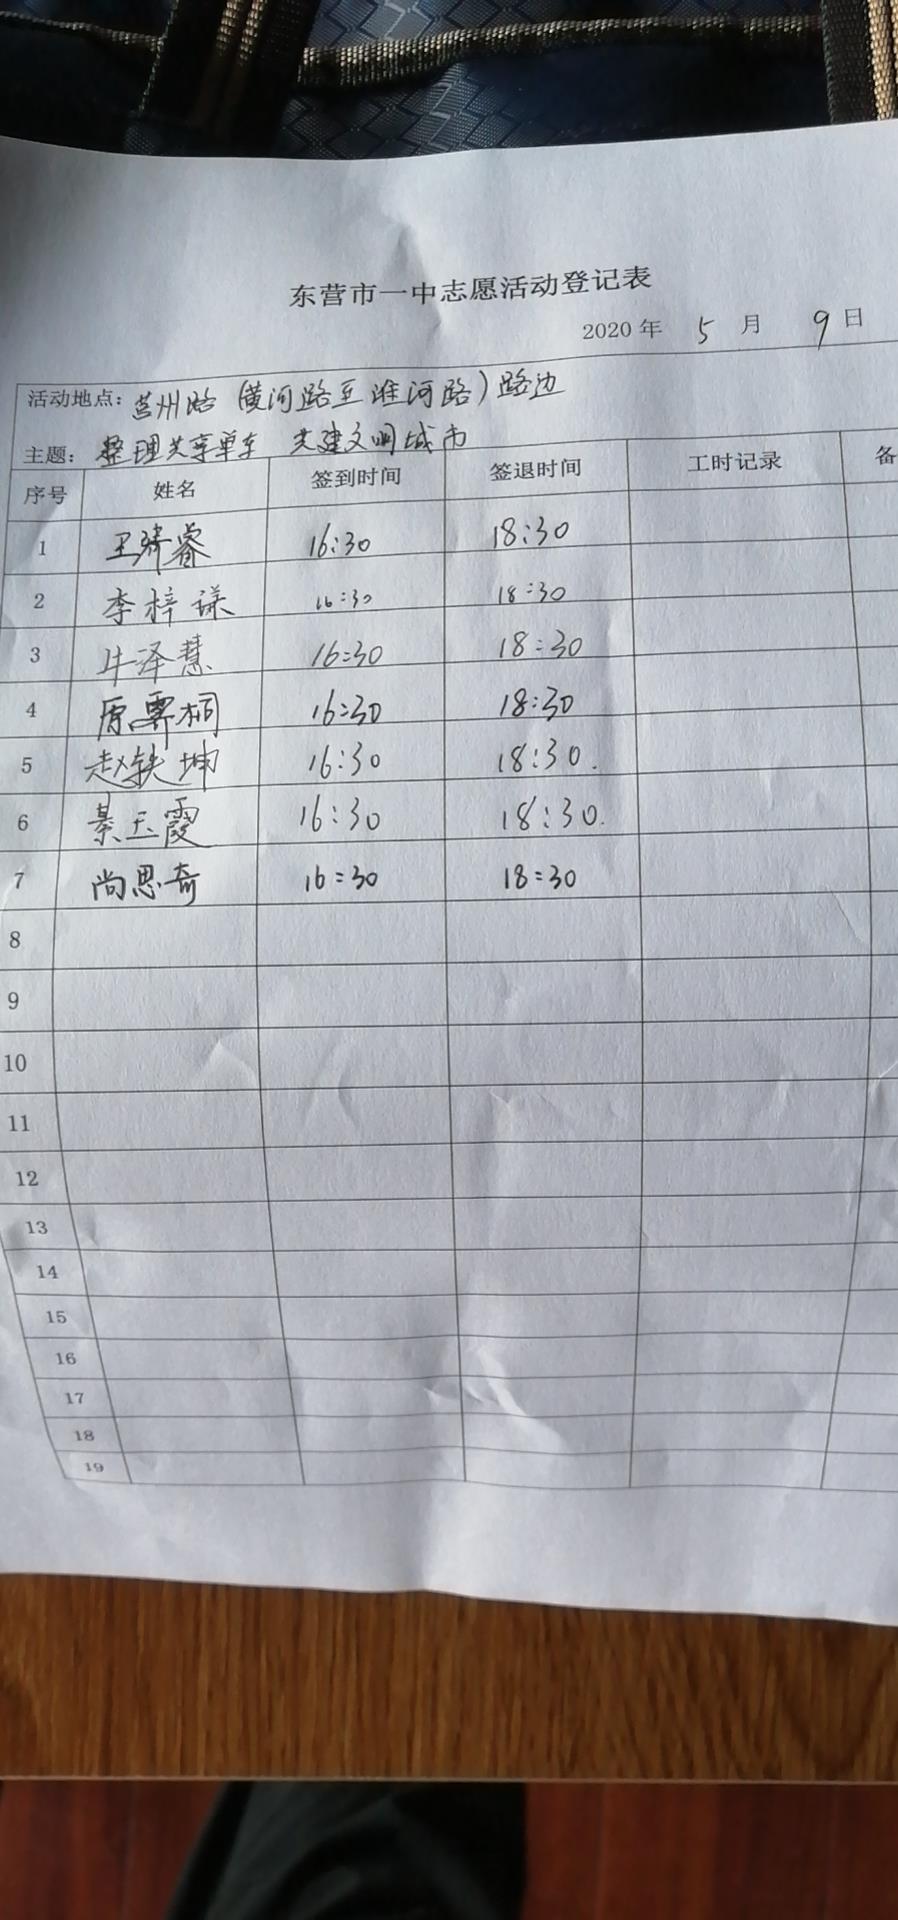 东营市一中志愿活动登记表
2020 年 5 月 9 日
活动地点: 莒州路 (黄河路至淮河路) 路边
主题: 整理共享单车 共建文明城市
序号 姓名 签到时间 签退时间 工时记录 备
1 王 睿 16:30 18:30
2 李梓谦 16:30 18:30
3 牛泽慧 16:30 18:30
4 原霁桐 16:30 18:30
5 赵轶坤 16:30 18:30.
6 綦玉霞 16:30 18:30.
7 尚思奇 16:30 18:30
8
9
10
11
12
13
14
15
16
17
18
19